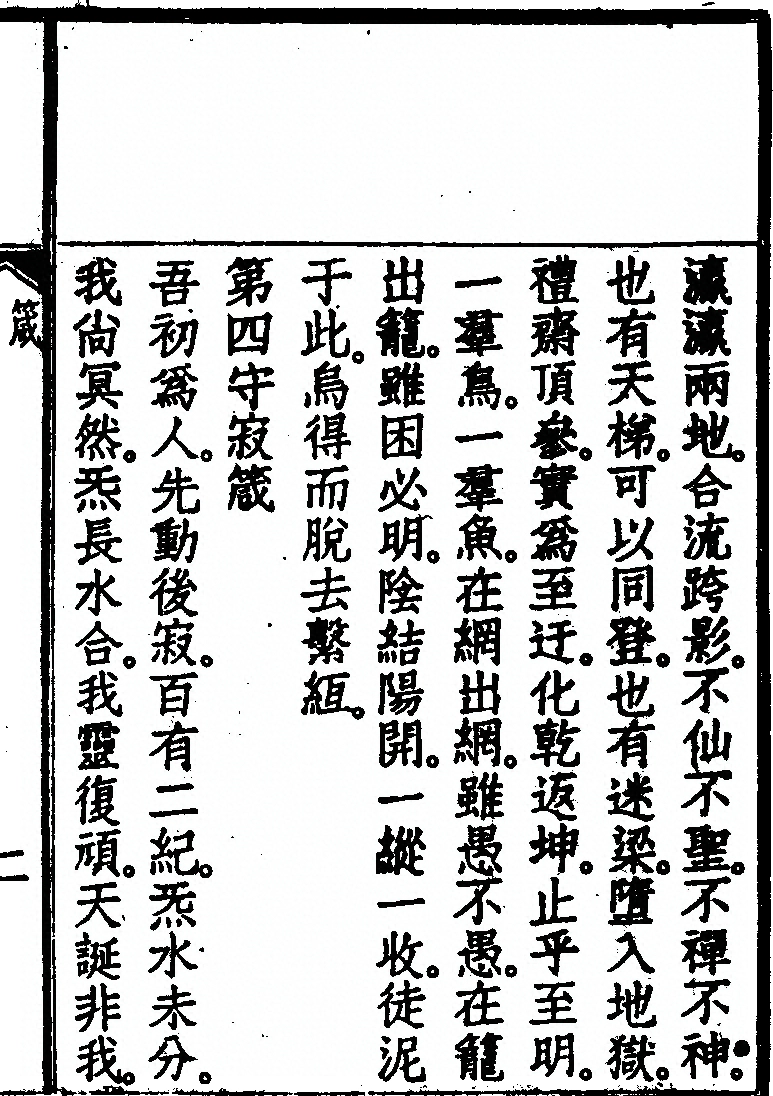 瀛瀛兩地。合流跨影。不仙不聖。不禪不神。
也有天梯。可以同登。也有迷梁。墮入地獄。
禮齋頂參。實爲至迂。化乾返坤。止乎至明。
一羣鳥。一羣魚。在網出網。雖愚不愚。在籠
出籠。雖困必明。陰結陽開。一縱一收。徒泥
于此。烏得而脫去繫縆。
第四守寂箴
吾初爲人。先動後寂。百有二紀。炁水未分。
我尙冥然。炁長水合。我靈復頑。天誕非我。
箴
二